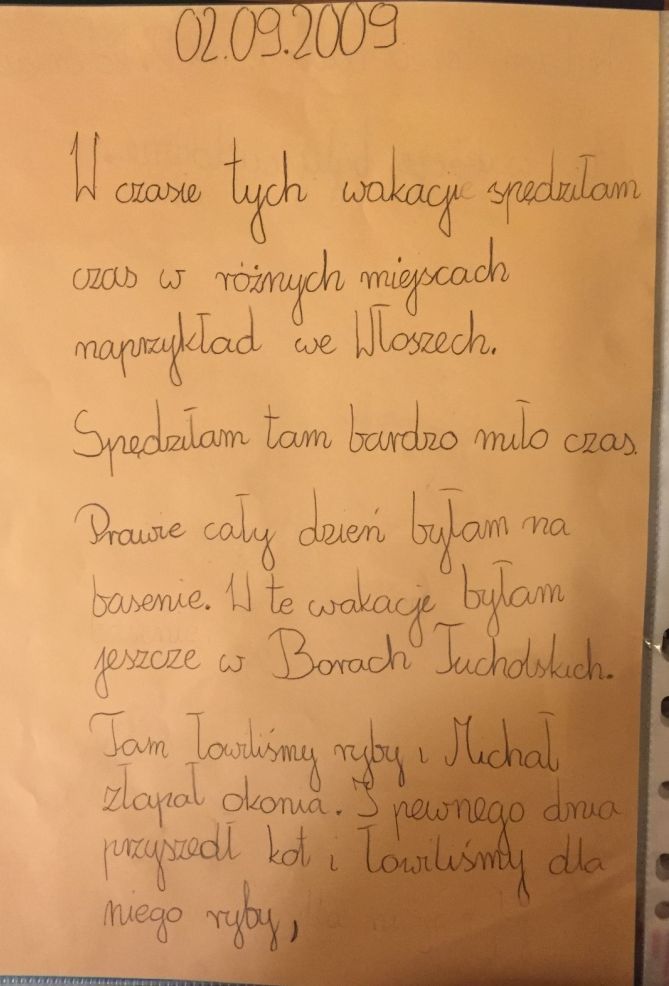 02.09.2009
W czasie tych wakacji spędziłam
czas w różnych miejscach
naprzykład we Włoszech.
Spędziłam tam bardzo miło czas.
Prawie cały dzień byłam na
basenie. W te wakacje byłam
jeszcze w Borach Tucholskich.
Tam łowiliśmy ryby i Michał
złapał okonia. I pewnego dnia
przyszedł kot i łowiliśmy dla
niego ryby,